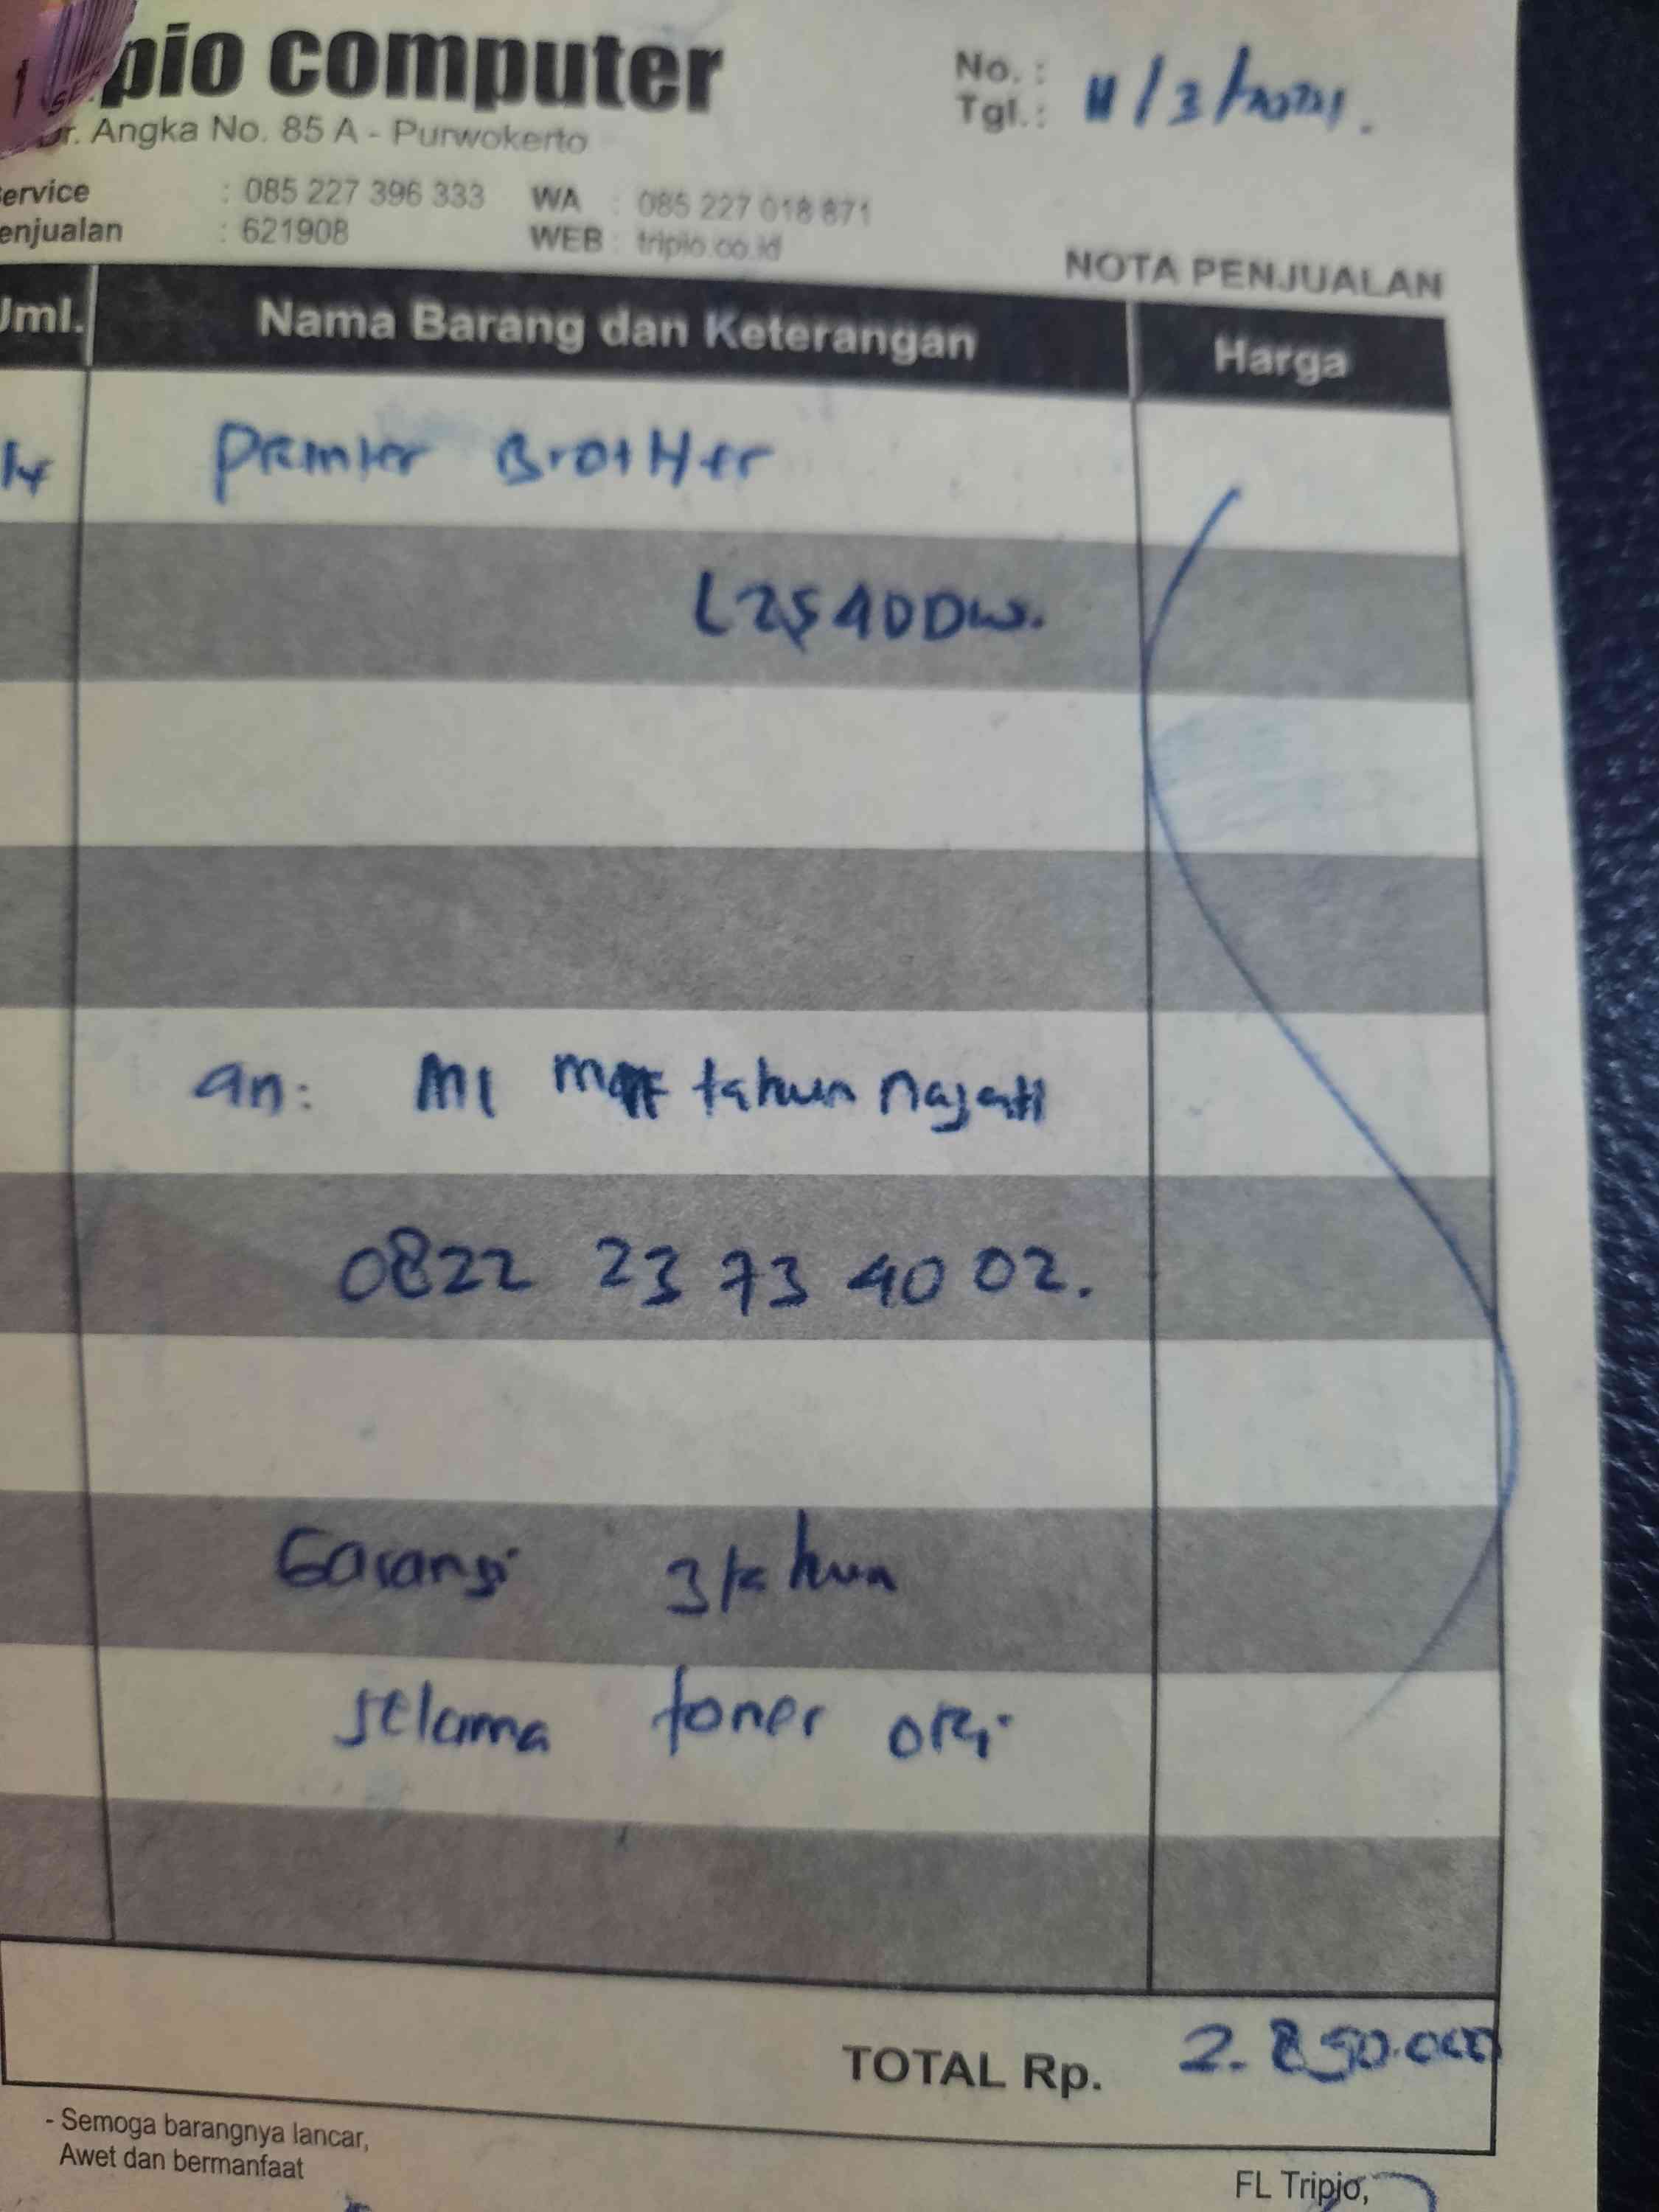 pio computer
Dr. Angka No. 85 A - Purwokerto
No. :
Tgl.: 11/3/
ervice : 085 227 396 333 WA : 085 227 018 871
enjualan : 621908 WEB : tripio.co.id
NOTA PENJUALAN
Jml. Nama Barang dan Keterangan Harga
Brother
L2540DW.
an: MI tahun najati
0822 23 73 40 02.
Garansi 3 tahun
selama toner ori
TOTAL Rp. 2.850.000
- Semoga barangnya lancar,
Awet dan bermanfaat
FL Tripio,